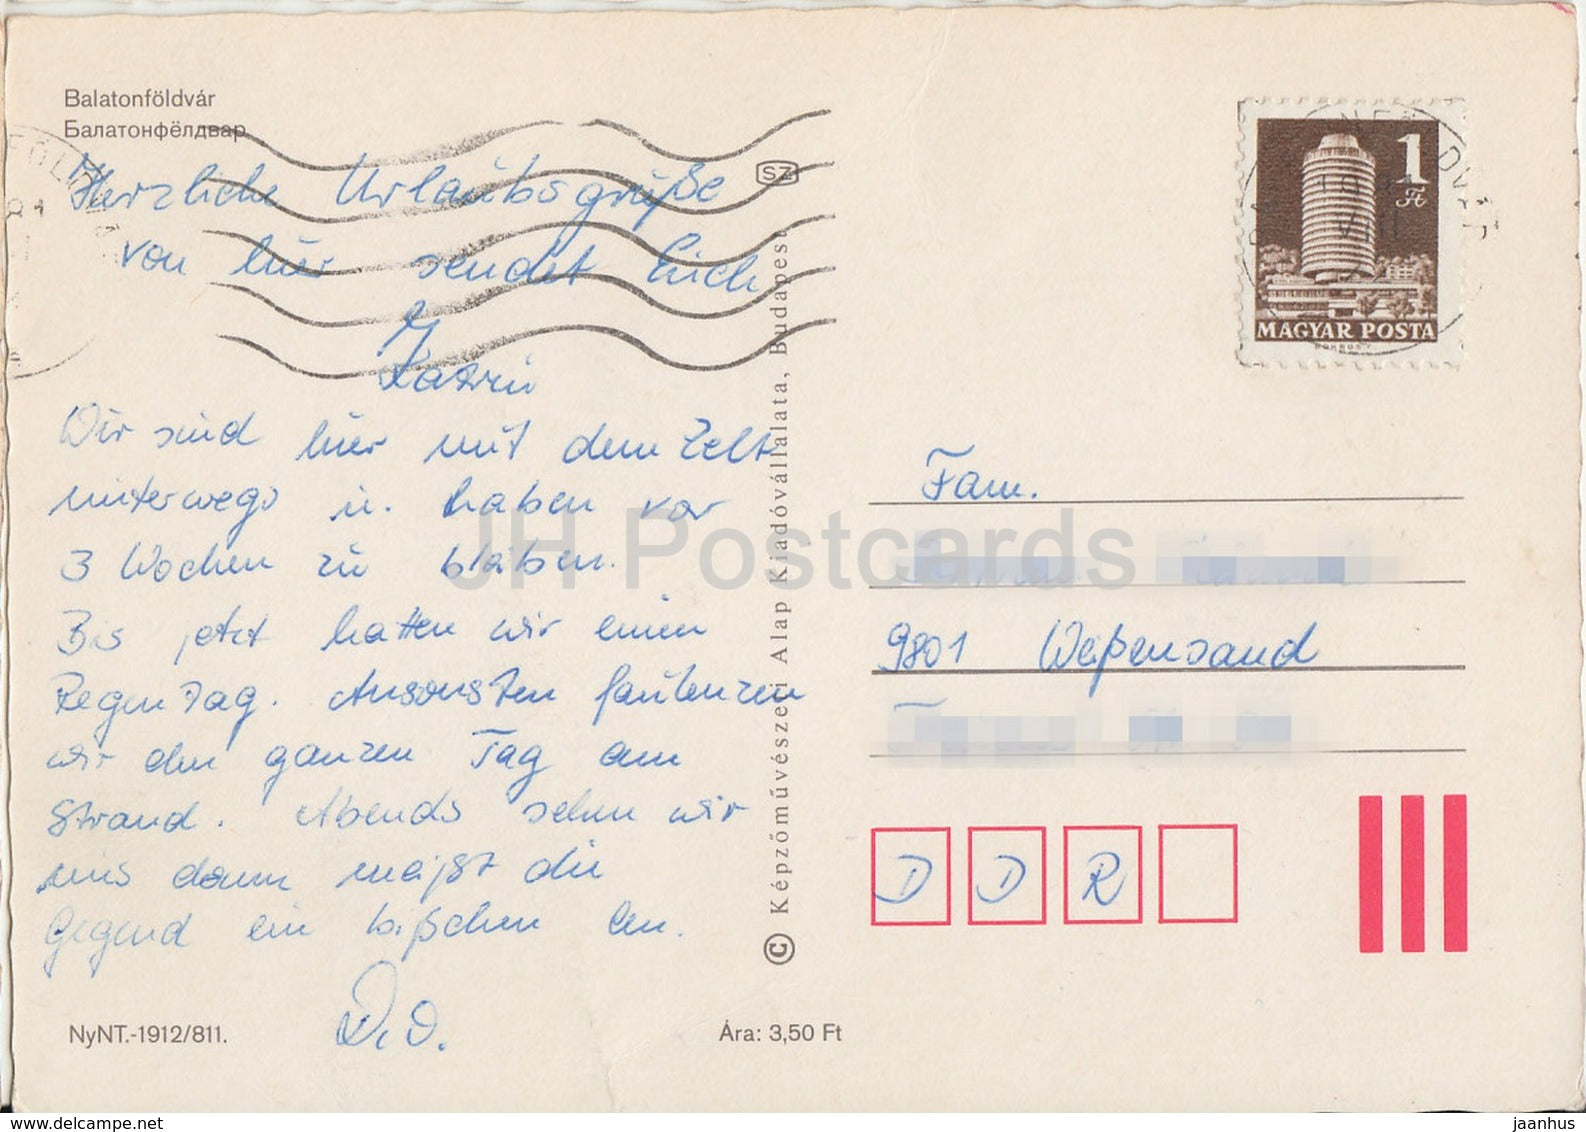 Balatonföldvár
Балатонфёлдвар
Herzliche Urlaubsgrüße
von hier sendet Euch
Katrin
Wir sind hier mit dem Zelt
unterwegs u. haben vor
3 Wochen zu bleiben.
Bis jetzt hatten wir einen
Regentag. Ansonsten faulenzen
wir den ganzen Tag am
Strand. Abends sehen wir
uns dann meißt die
Gegend ein bißchen an.
D.O.
NyNT.-1912/811.
Ára: 3,50 Ft
SZ
© Képzőművészeti Alap Kiadóvállalata, Budapest
1
Ft
MAGYAR POSTA
Fam.
9801 Weißensand
D D R
JH Postcards
www.delcampe.net
jaanhus